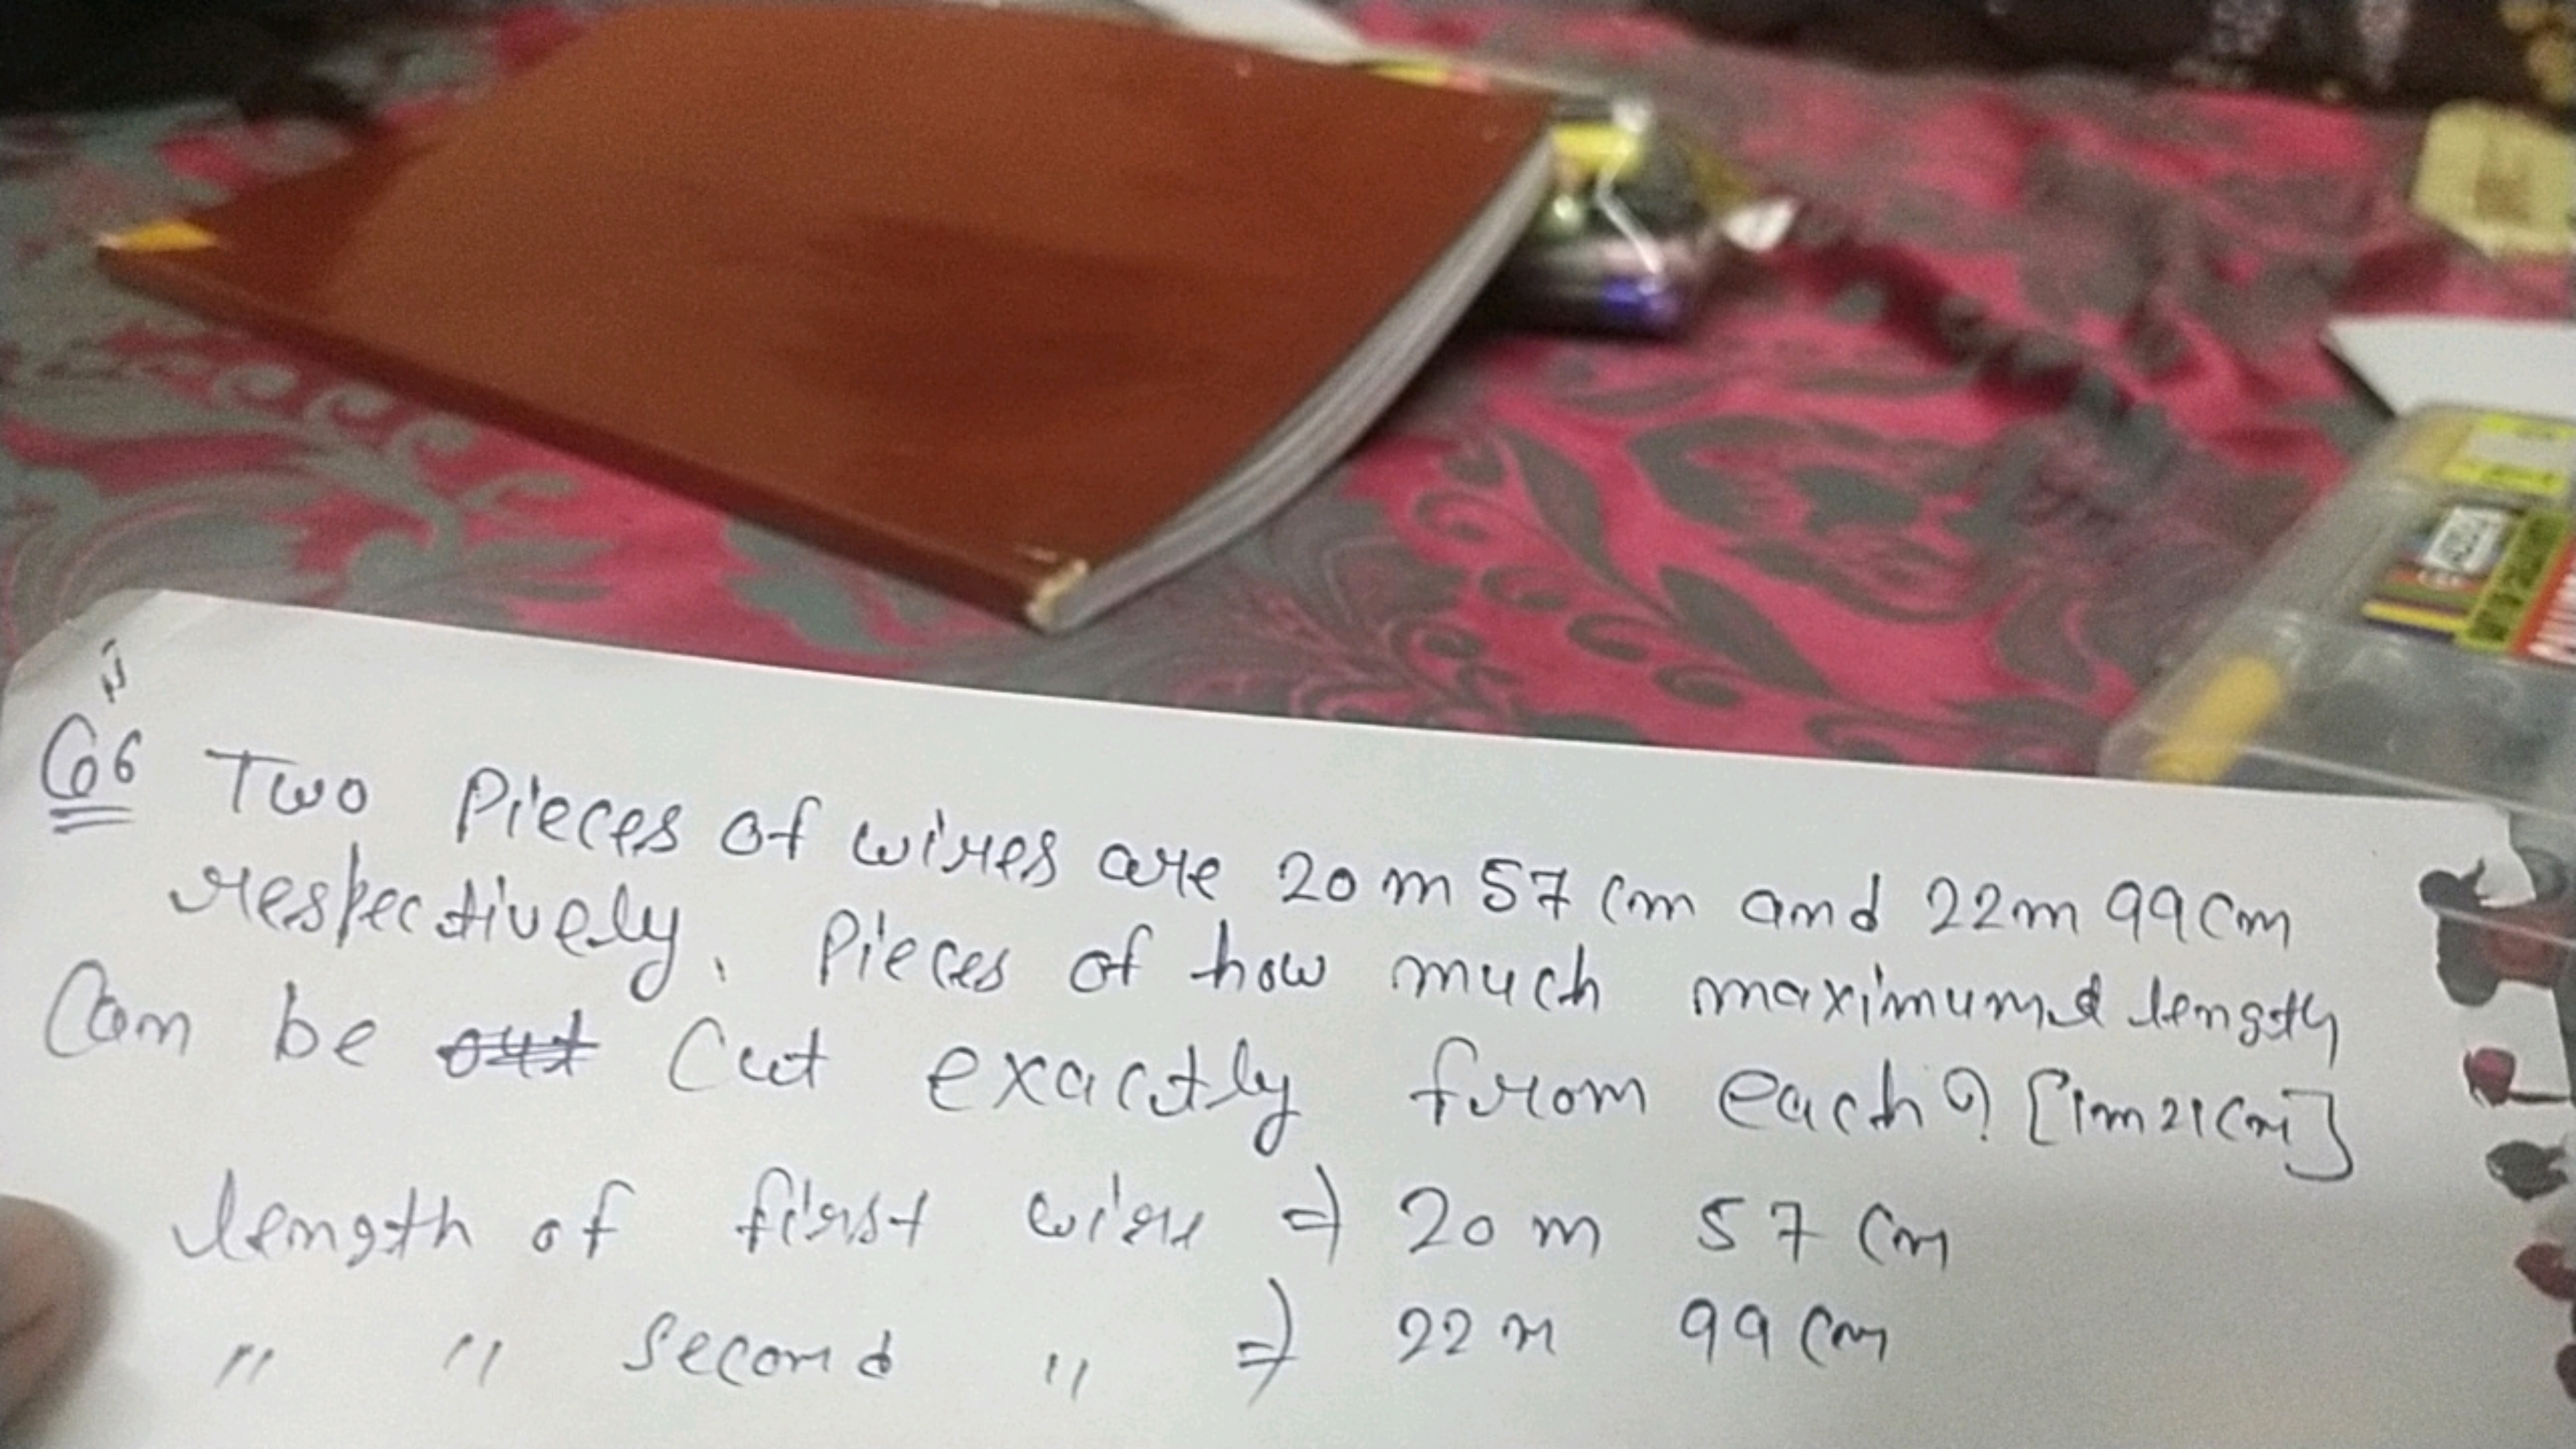 Q6 Two Pieces of wires are 20 m 57 cm and 22 m 99 cm
respectively. Pieces of how much maximum length
Can be Cut exactly from each? [1m 21 cm]
length of first wire ⇒ 20 m 57 cm
" " second " ⇒ 22 m 99 cm